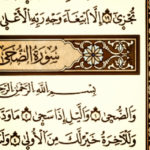 تُجْزَىٰٓ ۝ إِلَّا ٱبْتِغَآءَ وَجْهِ رَبِّهِ ٱلْأَعْلَىٰ
سُورَةُ الضُّحَىٰ
بِسْمِ ٱللَّهِ ٱلرَّحْمَٰنِ ٱلرَّحِيمِ
وَٱلضُّحَىٰ ۝ وَٱلَّيْلِ إِذَا سَجَىٰ ۝ مَا وَدَّ
وَلَلْءَاخِرَةُ خَيْرٌ لَّكَ مِنَ ٱلْأُولَىٰ ۝